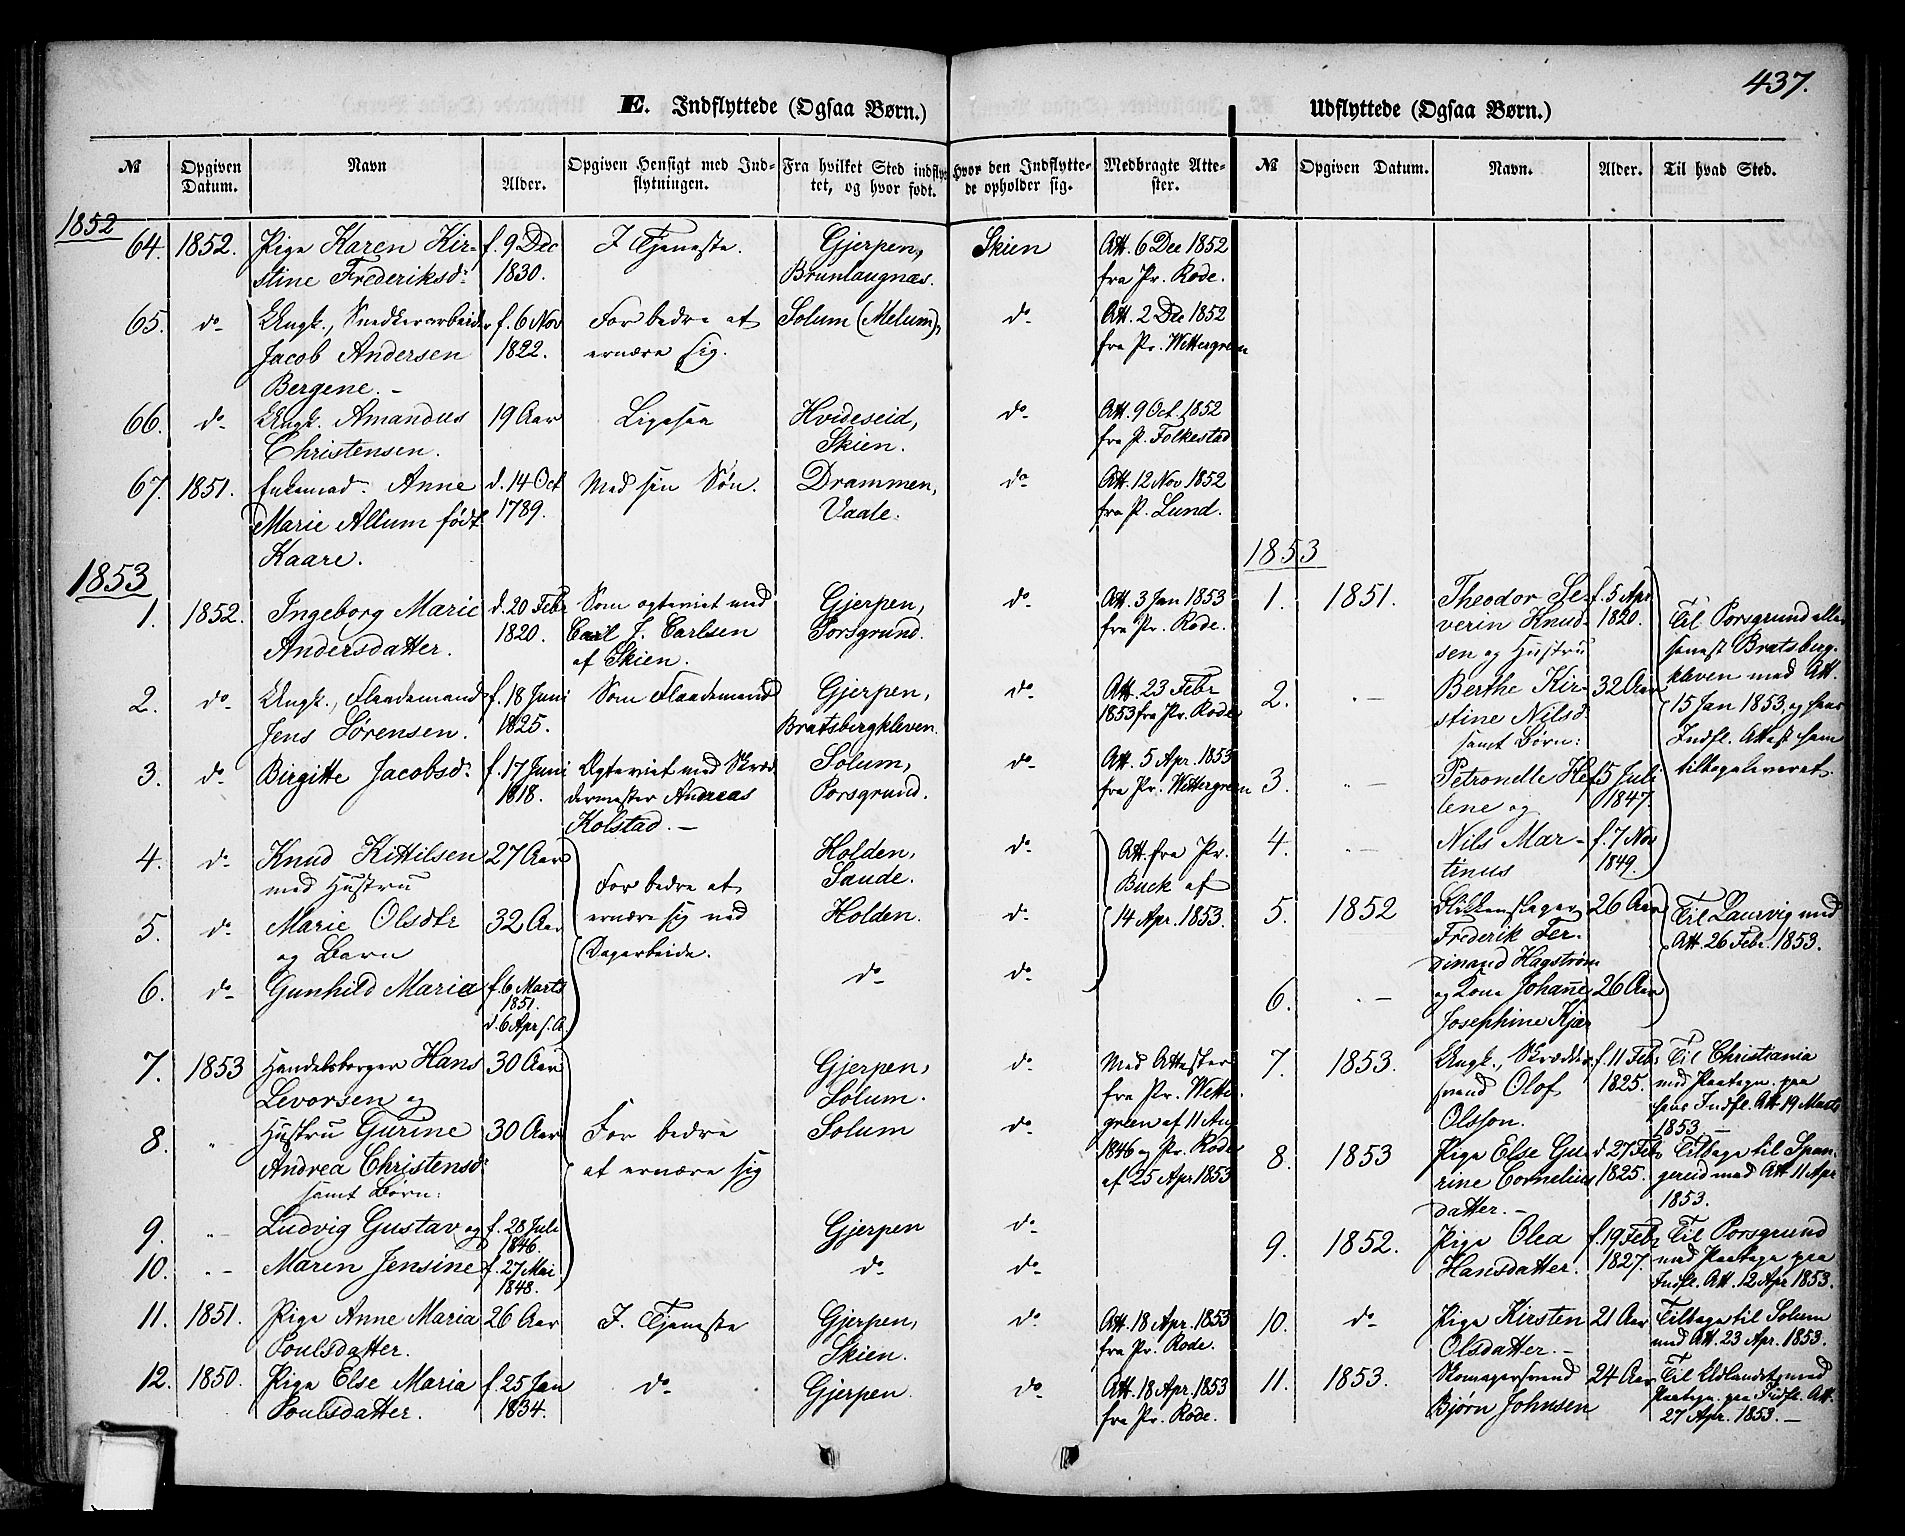 437.
E. Indflyttede (Ogsaa Børn.)
№ | Opgiven Datum. | Navn | Alder. | Opgiven Hensigt med Indflytningen. | Fra hvilket Sted indflyttet, og hvor født. | Hvor den Indflyttede opholder sig. | Medbragte Attester.
1852
64. 1852. Pige Karen Kir- f. 9 Dec I Tjeneste. Gjerpen, Skien Att. 6 Dec 1852
stine Frederiksd: 1830. Brunlaugnæs. fra Pr. Rode.
65. do Ungk., Snedkerarbeider f. 6 Nov For bedre at Solum (Melum), do Att. 2 Dec 1852
Jacob Andersen 1822. ernære sig. fra Pr. Wettergreen
Bergene. –
66. do Ungk. Amandus 19 Aar Ligesaa Hvideseid, do Att. 9 Oct. 1852
Christensen. Skien. fra P. Folkestad
67. 1851. Enkemad. Anne d. 14 Oct Med sin Søn. Drammen, do Att. 12 Nov 1852
Marie Allum født 1789. Vaale. fra P. Lund.
Kaare.
1853
1. 1852. Ingeborg Marie d. 20 Febr Som egteviet med Gjerpen, do Att. 3 Jan 1853
Andersdatter. 1820. Carl J. Carlsen Porsgrund. fra Pr. Rode.
af Skien.
2. do Ungk., Flaademand f. 18 Juni Som Flaademand Gjerpen, do Att. 23 Febr
Jens Sørensen. 1825. Bratsbergkleven. 1853 fra Pr. Rode
3. do Birgitte Jacobsd: f. 17 Juni Egteviet med Skræd- Solum, do Att. 5 Apr. 1853
1818. dermester Andreas Porsgrund. fra Pr. Wettergreen
Kolstad. –
4. do Knud Kittilsen 27 Aar Holden, do Att. fra Pr.
med Hustru For bedre at Saude. Buck af
5. do Marie Olsdtr 32 Aar ernære sig ved Holden. do 14 Apr. 1853.
og Barn Dagarbeide.
6. do Gunhild Maria f. 6 Marts do do
1851.
d. 6 Apr s. A.
7. 1853 Handelsborger Hans 30 Aar Gjerpen, do Med Attester
Levorsen og Solum. fra Pr. Wetter-
8. " Hustru Gurine 30 Aar For bedre Solum do green af 11 Aug
Andrea Christensd: at ernære sig 1846 og Pr. Rode
samt Børn: af 25 Apr 1853
9. " – Ludvig Gustav og f. 28 Juli Gjerpen do
1846.
10. " – Maren Jensine f. 27 Mai do do
1848.
11. 1851. Pige Anne Maria 26 Aar I Tjeneste Gjerpen, do Att. 18 Apr. 1853
Poulsdatter. Skien. fra Pr. Rode.
12. 1850. Pige Else Maria f. 25 Jan do Gjerpen. do Att. 18 Apr. 1853
Poulsdatter. 1834. fra Pr. Rode.
Udflyttede (Ogsaa Børn.)
№ | Opgiven Datum. | Navn. | Alder. | Til hvad Sted.
1853
1. 1851. Theodor Se- f. 5 Apr
verin Knud- 1820. Til Porsgrund eller
sen og Hustru senest Bratsberg-
2. " – Berthe Kir- 32 Aar kleven med Att.
stine Nilsd: 15 Jan 1853, og hans
samt Børn: Indfl. Attest ham
3. " – Petronelle He- f. 5 Juli tilbageleveret.
lene og 1847.
4. " – Nils Mar- f. 7 Nov
tinus 1849.
5. 1852 Blikkenslager 26 Aar Til Laurvig med
Frederik Fer- Att. 26 Febr. 1853.
dinand Hagstrøm
6. " – og Kone Johanne 26 Aar
Josephine Kjær
7. 1853. Ungk., Skrædder- f. 11 Feb: Til Christiania
svend Olof 1825. med Paategn. paa
Olsson. hans Indfl. Att 19 Marts
1853. –
8. 1853 Pige Else Gu- d 27 Feb: Tilbage til Span-
rine Cornelius 1825. gerud med Att 11 Apr
datter. – 1853.
9. 1852. Pige Olea f. 19 Feb: Til Porsgrund
Hansdatter. 1827. med Paategn paa
Indfl. Att. 12 Apr 1853.
10. do Pige Kirsten 21 Aar Tilbage til Solum
Olsdatter. – med Att. 23 Apr. 1853.
11. 1853. Skomagersvend 24 Aar Til Udlandet med
Bjørn Johnsen Paategn. paa Indfl. Att.
27 Apr. 1853. –